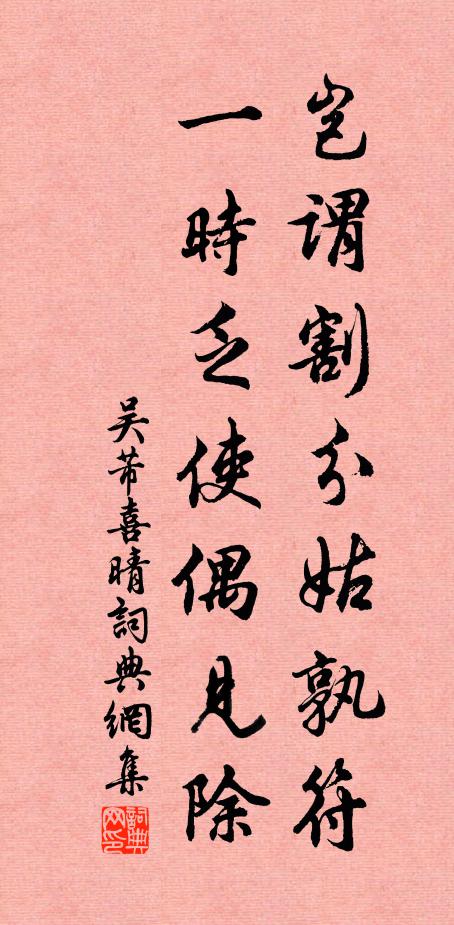 岂謂割分姑孰符
一時乏使偶見除
吴芾喜晴詞典網集
詞典网印